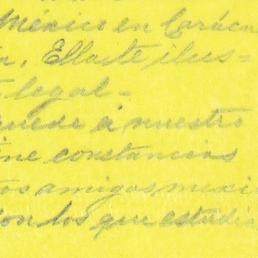 México en Carác
n, Ellaite ilus-
legal-
uede a nuestro
ine constancias
os amigos mexi
on los que estudi